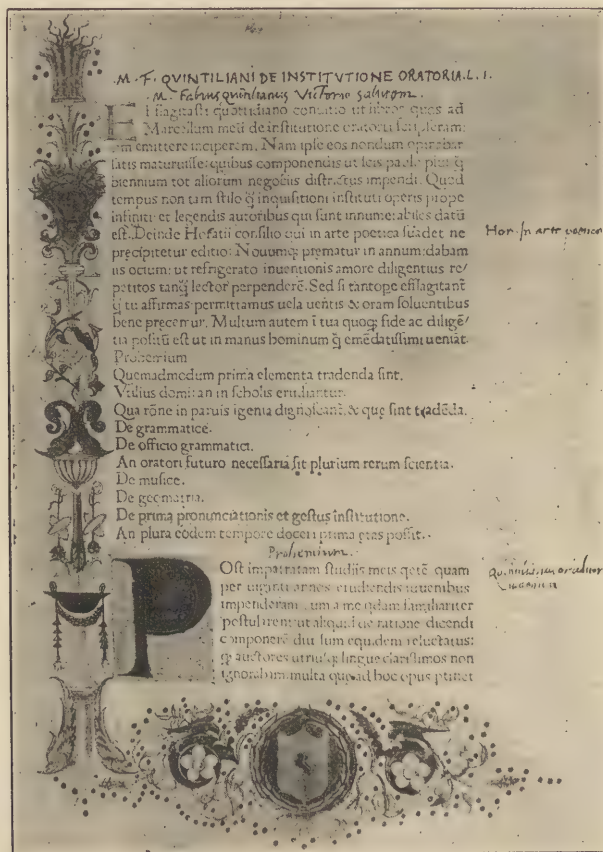 M. F. QVINTILIANI DE INSTITVTIONE ORATORIA. L. I.
M. Fabius quintilianus Victorio salutem.
flagitasti quottidiano conuitio ut libros quos ad
Marcellum meū de institutione oratoria scripseram:
iam emittere inciperem. Nam ipse eos nondum opinabar
satis maturuisse: quibus componendis ut scis paulo plus q̄
biennium tot aliorum negociis districtus impendi. Quod
tempus non tam stilo q̄ inquisitioni instituti operis prope
infiniti et legendis autoribus qui sunt innumerabiles datū
est. Deinde Horatii consilio qui in arte poetica suadet ne
precipitetur editio: Nouumq; prematur in annum: dabam
iis ocium: ut refrigerato inuentionis amore diligentius re/
petitos tanq̄ lector perpenderē. Sed si tantope efflagitant
q̄ tu affirmas: permittamus uela uentis & oram soluentibus
bene precemur. Multum autem ī tua quoq; fide ac diligē/
tia positū est ut in manus hominum q̄ emēdatissimi ueniāt.
Prohemium
Quemadmodum prima elementa tradenda sint.
Vtilius domi: an in scholis erudiantur.
Qua rōne in paruis īgenia dignoscant̄. & que sint tradēda.
De grammatice.
De officio grammatici.
An oratori futuro necessaria sit plurium rerum scientia.
De musice.
De geometria.
De prima pronunciationis et gestus institutione.
An plura eodem tempore doceri prima etas possit.
Prohemium.
POst impetratam studiis meis quam
per uiginti annos erudiendis iuuenibus
impenderam: cum a me qdam familiariter
postularent ut aliquid de ratione dicendi
componerē diu sum equidem reluctatus:
q; auctores utriusq; lingue clarissimos non
ignorabam. multa que ad hoc opus ptinet
Hor. In arte poetica